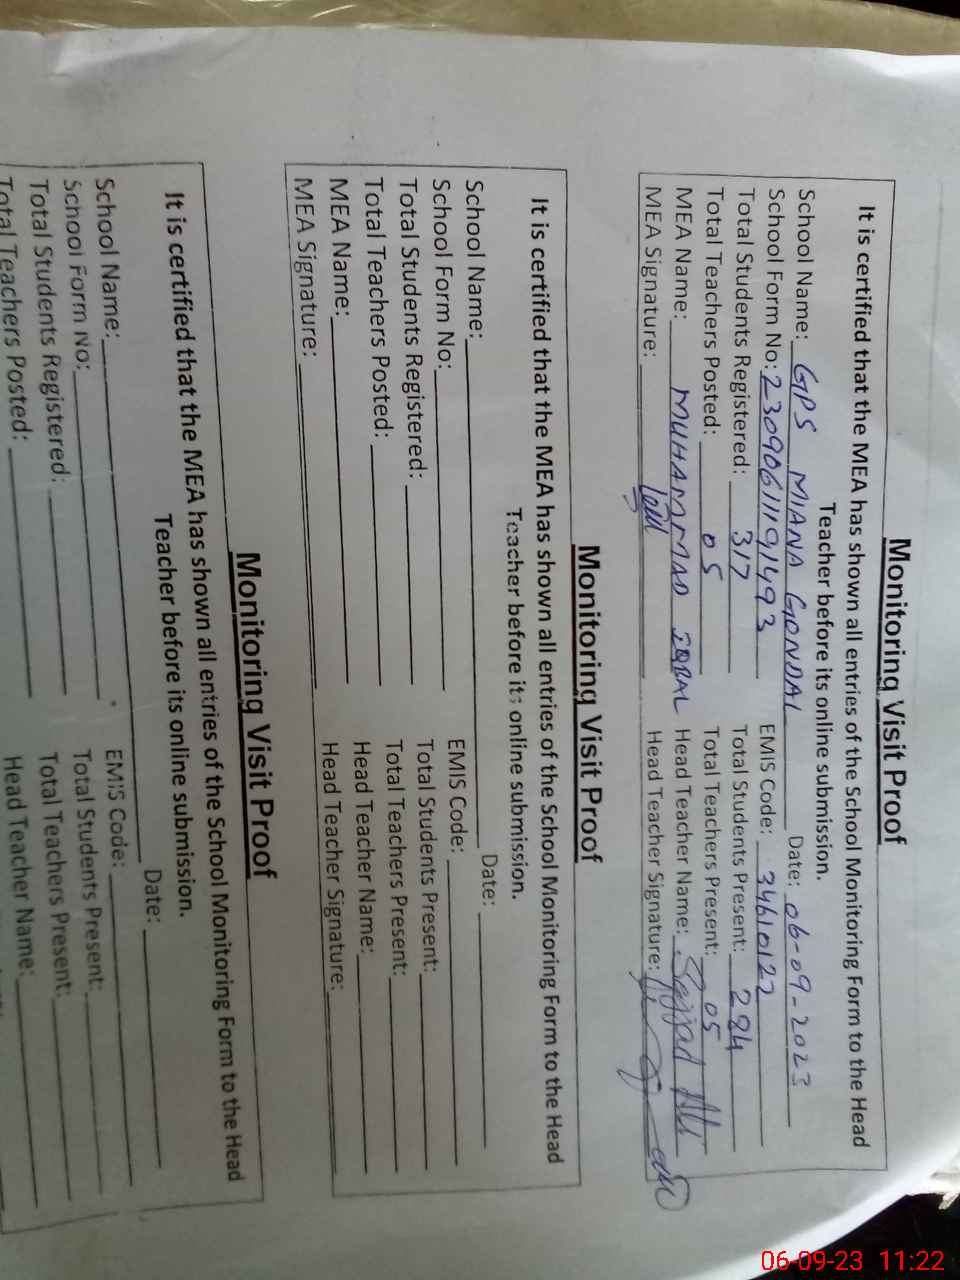 Monitoring Visit Proof
It is certified that the MEA has shown all entries of the School Monitoring Form to the Head
Teacher before its online submission.
School Name: GPS MIANA GONDAL Date: 06-09-2023
School Form No: 230906111911493 EMIS Code: 34610122
Total Students Registered: 317 Total Students Present: 284
Total Teachers Posted: 05 Total Teachers Present: 05
MEA Name: MUHAMMAD IQBAL Head Teacher Name: Sajjad Ali
MEA Signature: Head Teacher Signature:
Monitoring Visit Proof
It is certified that the MEA has shown all entries of the School Monitoring Form to the Head
Teacher before its online submission.
School Name: Date:
School Form No: EMIS Code:
Total Students Registered: Total Students Present:
Total Teachers Posted: Total Teachers Present:
MEA Name: Head Teacher Name:
MEA Signature: Head Teacher Signature:
Monitoring Visit Proof
It is certified that the MEA has shown all entries of the School Monitoring Form to the Head
Teacher before its online submission.
School Name: Date:
School Form No: EMIS Code:
Total Students Registered: Total Students Present:
Total Teachers Posted: Total Teachers Present:
Head Teacher Name:
06-09-23 11:22